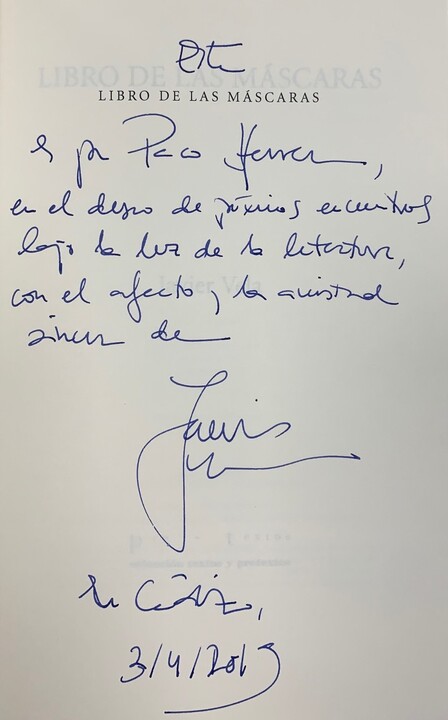 Este
LIBRO DE LAS MÁSCARAS
es para Paco Herrera,
en el deseo de próximos encuentros
bajo la luz de la literatura,
con el afecto y la amistad
sincera de
Javier
En Cádiz,
3/4/2019